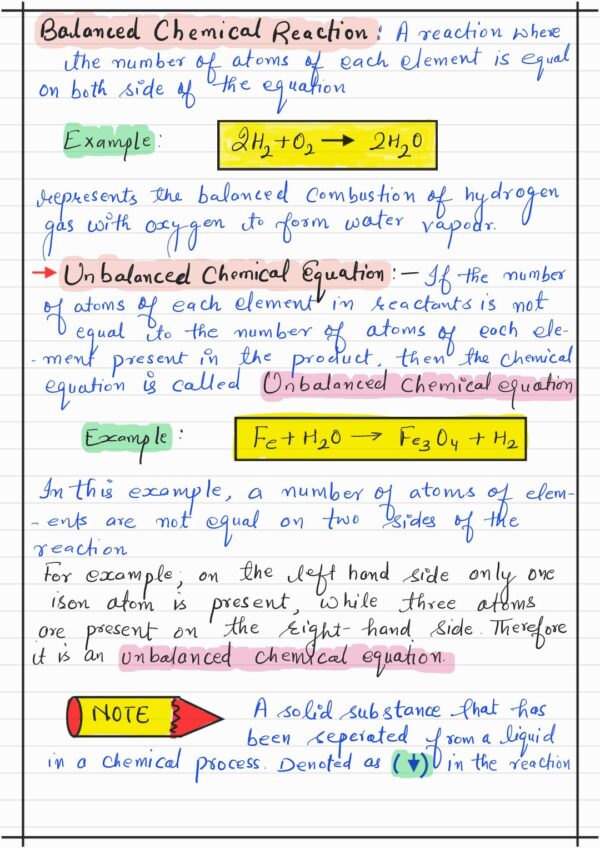 Balanced Chemical Reaction: A reaction where
the number of atoms of each element is equal
on both side of the equation
Example: 2H₂+O₂ → 2H₂O
represents the balanced combustion of hydrogen
gas with oxygen to form water vapour.
→ Unbalanced Chemical Equation:— If the number
of atoms of each element in reactants is not
equal to the number of atoms of each ele-
-ment present in the product, then the chemical
equation is called Unbalanced chemical equation
Example: Fe + H₂O → Fe₃O₄ + H₂
In this example, a number of atoms of elem-
-ents are not equal on two sides of the
reaction
For example; on the left hand side only one
iron atom is present, while three atoms
are present on the right-hand side. Therefore
it is an unbalanced chemical equation.
NOTE A solid substance that has
been seperated from a liquid
in a chemical process. Denoted as (↓) in the reaction